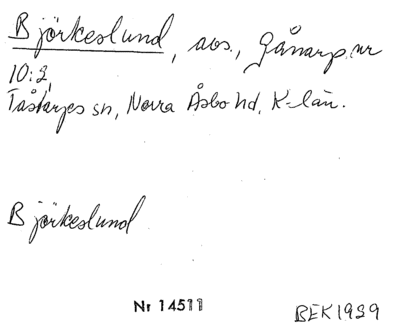 Björkeslund, avs., Gånarp nr
10:2,
Tåstarps sn, Norra Åsbo hd, K-län.
Björkeslund
Nr 14511
BEK 1939